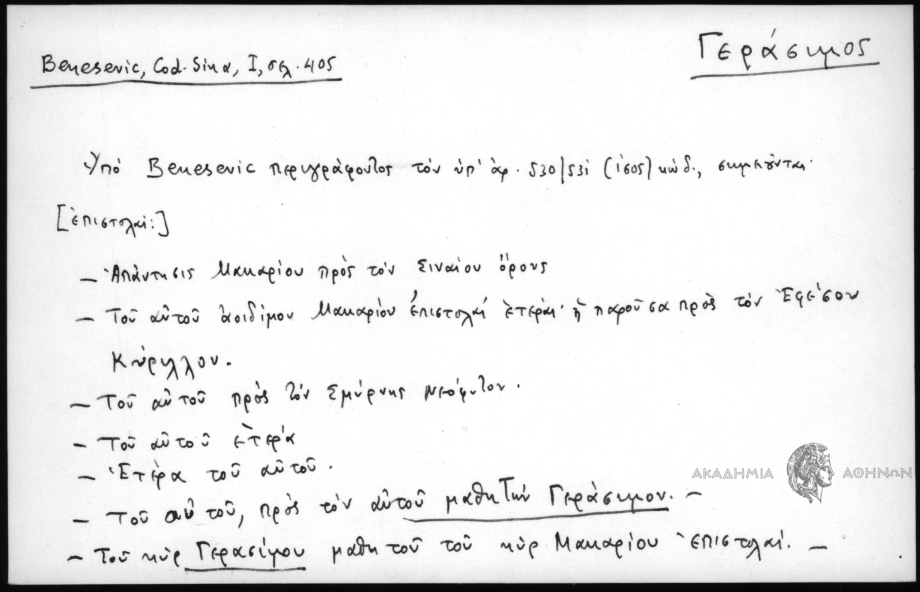 Γεράσιμος
Benesevic, Cod. Sina, I, σελ. 405
Ὑπό Benesevic περιγράφοντος τόν ὑπ' ἀρ. 530/531 (1605) κώδ., σημειοῦνται·
[ἐπιστολαί:]
— Ἀπάντησις Μακαρίου πρός τόν Σιναίου ὄρους
— Τοῦ αὐτοῦ ἀοιδίμου Μακαρίου ἐπιστολαί ἕτεραι· ἡ παροῦσα πρός τόν Ἐφέσου
Κύριλλον.
— Τοῦ αὐτοῦ πρός τόν Σμύρνης Νεόφυτον.
— Τοῦ αὐτοῦ ἑτέρα
— Ἑτέρα τοῦ αὐτοῦ.
— Τοῦ αὐτοῦ, πρός τόν αὐτοῦ μαθητήν Γεράσιμον. —
— Τοῦ κύρ Γερασίμου μαθητοῦ τοῦ κύρ Μακαρίου ἐπιστολαί. —
ΑΚΑΔΗΜΙΑ ΑΘΗΝΩΝ